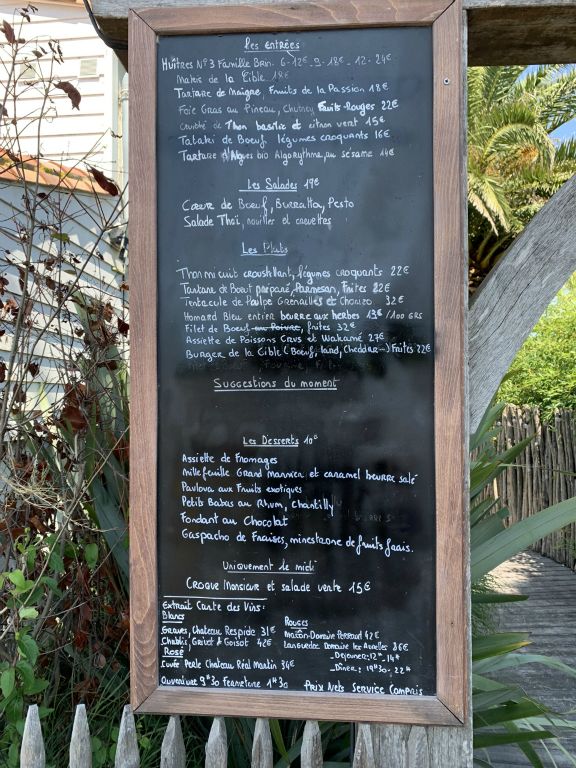 Les entrées
Huîtres N°3 Famille Brin. 6-12€_9-18€_12-24€
de la Cible 18€
Tartare de Maigre, Fruits de la Passion 18€
Foie Gras au Pineau, Chutney Fruits Rouges 22€
de Thon basilic et citron vert 15€
Tataki de Boeuf, légumes croquants 16€
Tartare d'Algues bio Algorythme, au sésame 14€
Les Salades 19€
Coeur de Boeuf, Burratta, Pesto
Salade Thaï, nouilles et crevettes
Les Plats
Thon mi cuit croustillant, légumes croquants 22€
Tartare de Boeuf préparé, Parmesan, Frites 22€
Tentacule de Poulpe Grenailles et Chorizo 32€
Homard Bleu entier beurre aux herbes 19€/100 GRS
Filet de Boeuf au Poivre, frites 32€
Assiette de Poissons Crus et Wakamé 27€
Burger de la Cible (Boeuf, lard, Cheddar..) Frites 22€
Suggestions du moment
Les Desserts 10€
Assiette de Fromages
Millefeuille Grand Marnier et caramel beurre salé
Pavlova aux Fruits exotiques
Petits Babas au Rhum, Chantilly
Fondant au Chocolat
Gaspacho de Fraises, minestrone de fruits frais.
Uniquement le midi
Croque Monsieur et salade verte 15€
Extrait Carte des Vins:
Blancs
Graves, Chateau Respide 31€
Chablis, Grivot & Goisot 42€
Rosé
Cuvée Perle Chateau Réal Martin 34€
Rouges
Macon-Domaine Perraud 42€
Languedoc Domaine les Aurelles 86€
_Déjeuner: 12H_14H
_Dîner: 19H30_22H
Ouverture 9H30 Fermeture 1H30
Prix Nets Service Compris